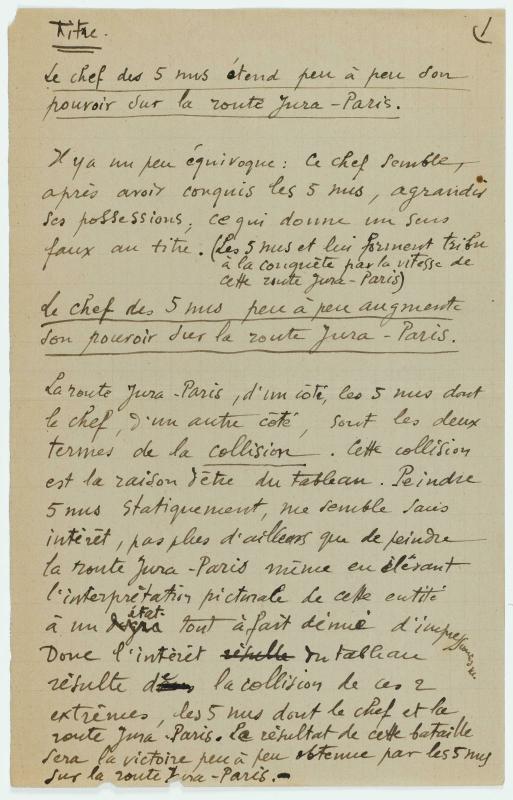 Titre.
Le chef des 5 nus étend peu à peu son
pouvoir sur la route Jura-Paris.
Il y a un peu équivoque : Ce chef semble,
après avoir conquis les 5 nus, agrandir
ses possessions, ce qui donne un sens
faux au titre. (Les 5 nus et lui forment tribu
à la conquête par la vitesse de
cette route Jura-Paris)
Le chef des 5 nus peu à peu augmente
son pouvoir sur la route Jura-Paris.
La route Jura-Paris, d'un côté, les 5 nus dont
le chef, d'un autre côté, sont les deux
termes de la collision. Cette collision
est la raison d'être du tableau. Peindre
5 nus statiquement, me semble sans
intérêt, pas plus d'ailleurs que de peindre
la route Jura-Paris même en élévant
l'interprétation picturale de cette entité
à un état tout à fait dénué d'impressionisme
Donc l'intérêt résulte du tableau
résulte de la collision de ces 2
extrêmes, les 5 nus dont le chef et la
route Jura-Paris. Le résultat de cette bataille
sera la victoire peu à peu obtenue par les 5 nus
sur la route Jura-Paris.-